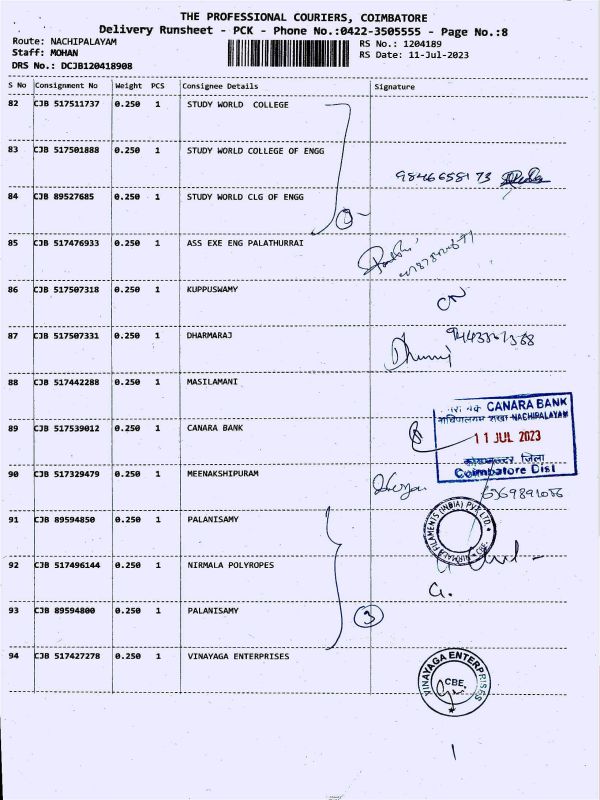 THE PROFESSIONAL COURIERS, COIMBATORE
Delivery Runsheet - PCK - Phone No.:0422-3505555 - Page No.:8
Route: NACHIPALAYAM RS No.: 1204189
Staff: MOHAN RS Date: 11-Jul-2023
DRS No.: DCJB120418908
S No Consignment No Weight PCS Consignee Details Signature
82 CJB 517511737 0.250 1 STUDY WORLD COLLEGE
83 CJB 517501888 0.250 1 STUDY WORLD COLLEGE OF ENGG
9846658173
84 CJB 89527685 0.250 1 STUDY WORLD CLG OF ENGG
85 CJB 517476933 0.250 1 ASS EXE ENG PALATHURRAI
86 CJB 517507318 0.250 1 KUPPUSWAMY
CN
87 CJB 517507331 0.250 1 DHARMARAJ
88 CJB 517442288 0.250 1 MASILAMANI
CANARA BANK
NACHIPALAYAM
89 CJB 517539012 0.250 1 CANARA BANK
11 JUL 2023
Coimbatore Dist
90 CJB 517329479 0.250 1 MEENAKSHIPURAM
91 CJB 89594850 0.250 1 PALANISAMY
NIRMALA FILAMENTS (INDIA) PVT. LTD
CBE.
92 CJB 517496144 0.250 1 NIRMALA POLYROPES
G.
93 CJB 89594800 0.250 1 PALANISAMY
3
94 CJB 517427278 0.250 1 VINAYAGA ENTERPRISES
VINAYAGA ENTERPRISES
CBE.